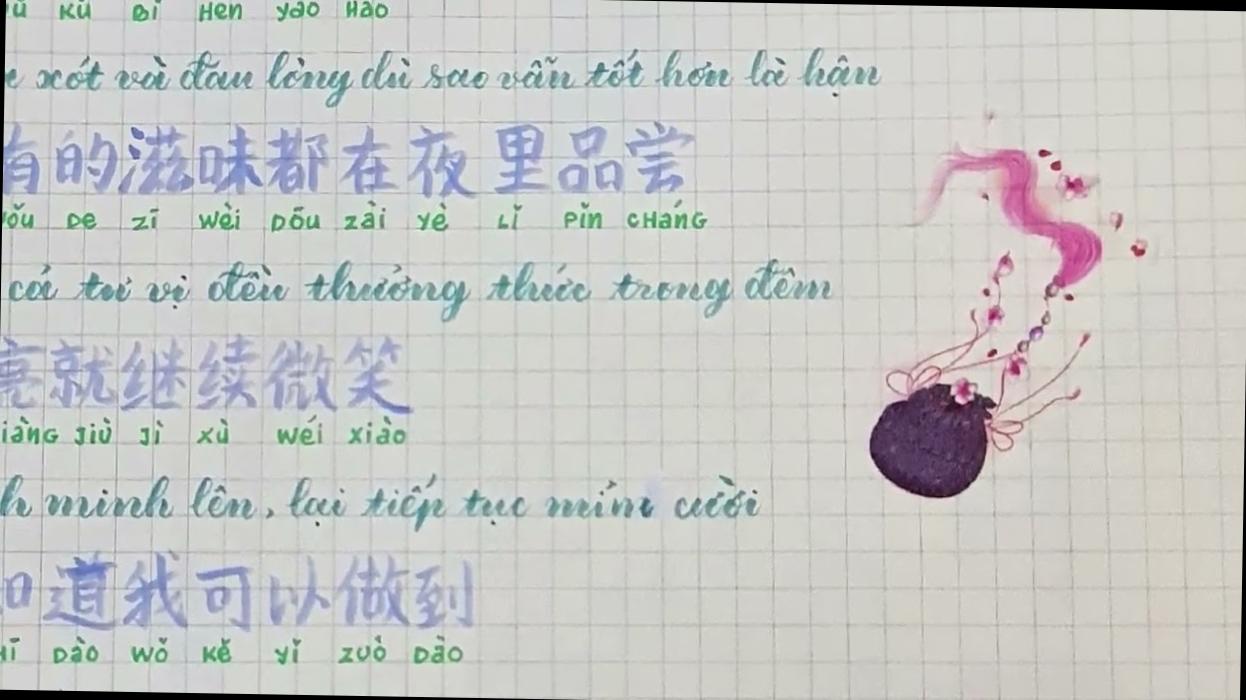 Kǔ Bǐ Hen yao Hao
xót và đau lòng dù sao vẫn tốt hơn là hận
有的滋味都在夜里品尝
De zī wèi Dōu zài yè Lǐ Pǐn CHáng
có tư vị đều thưởng thức trong đêm
亮就继续微笑
iàng Jiù Jì xù wéi xiào
minh lên, lại tiếp tục mỉm cười
道我可以做到
Dào wǒ Kě yǐ zuò Dào